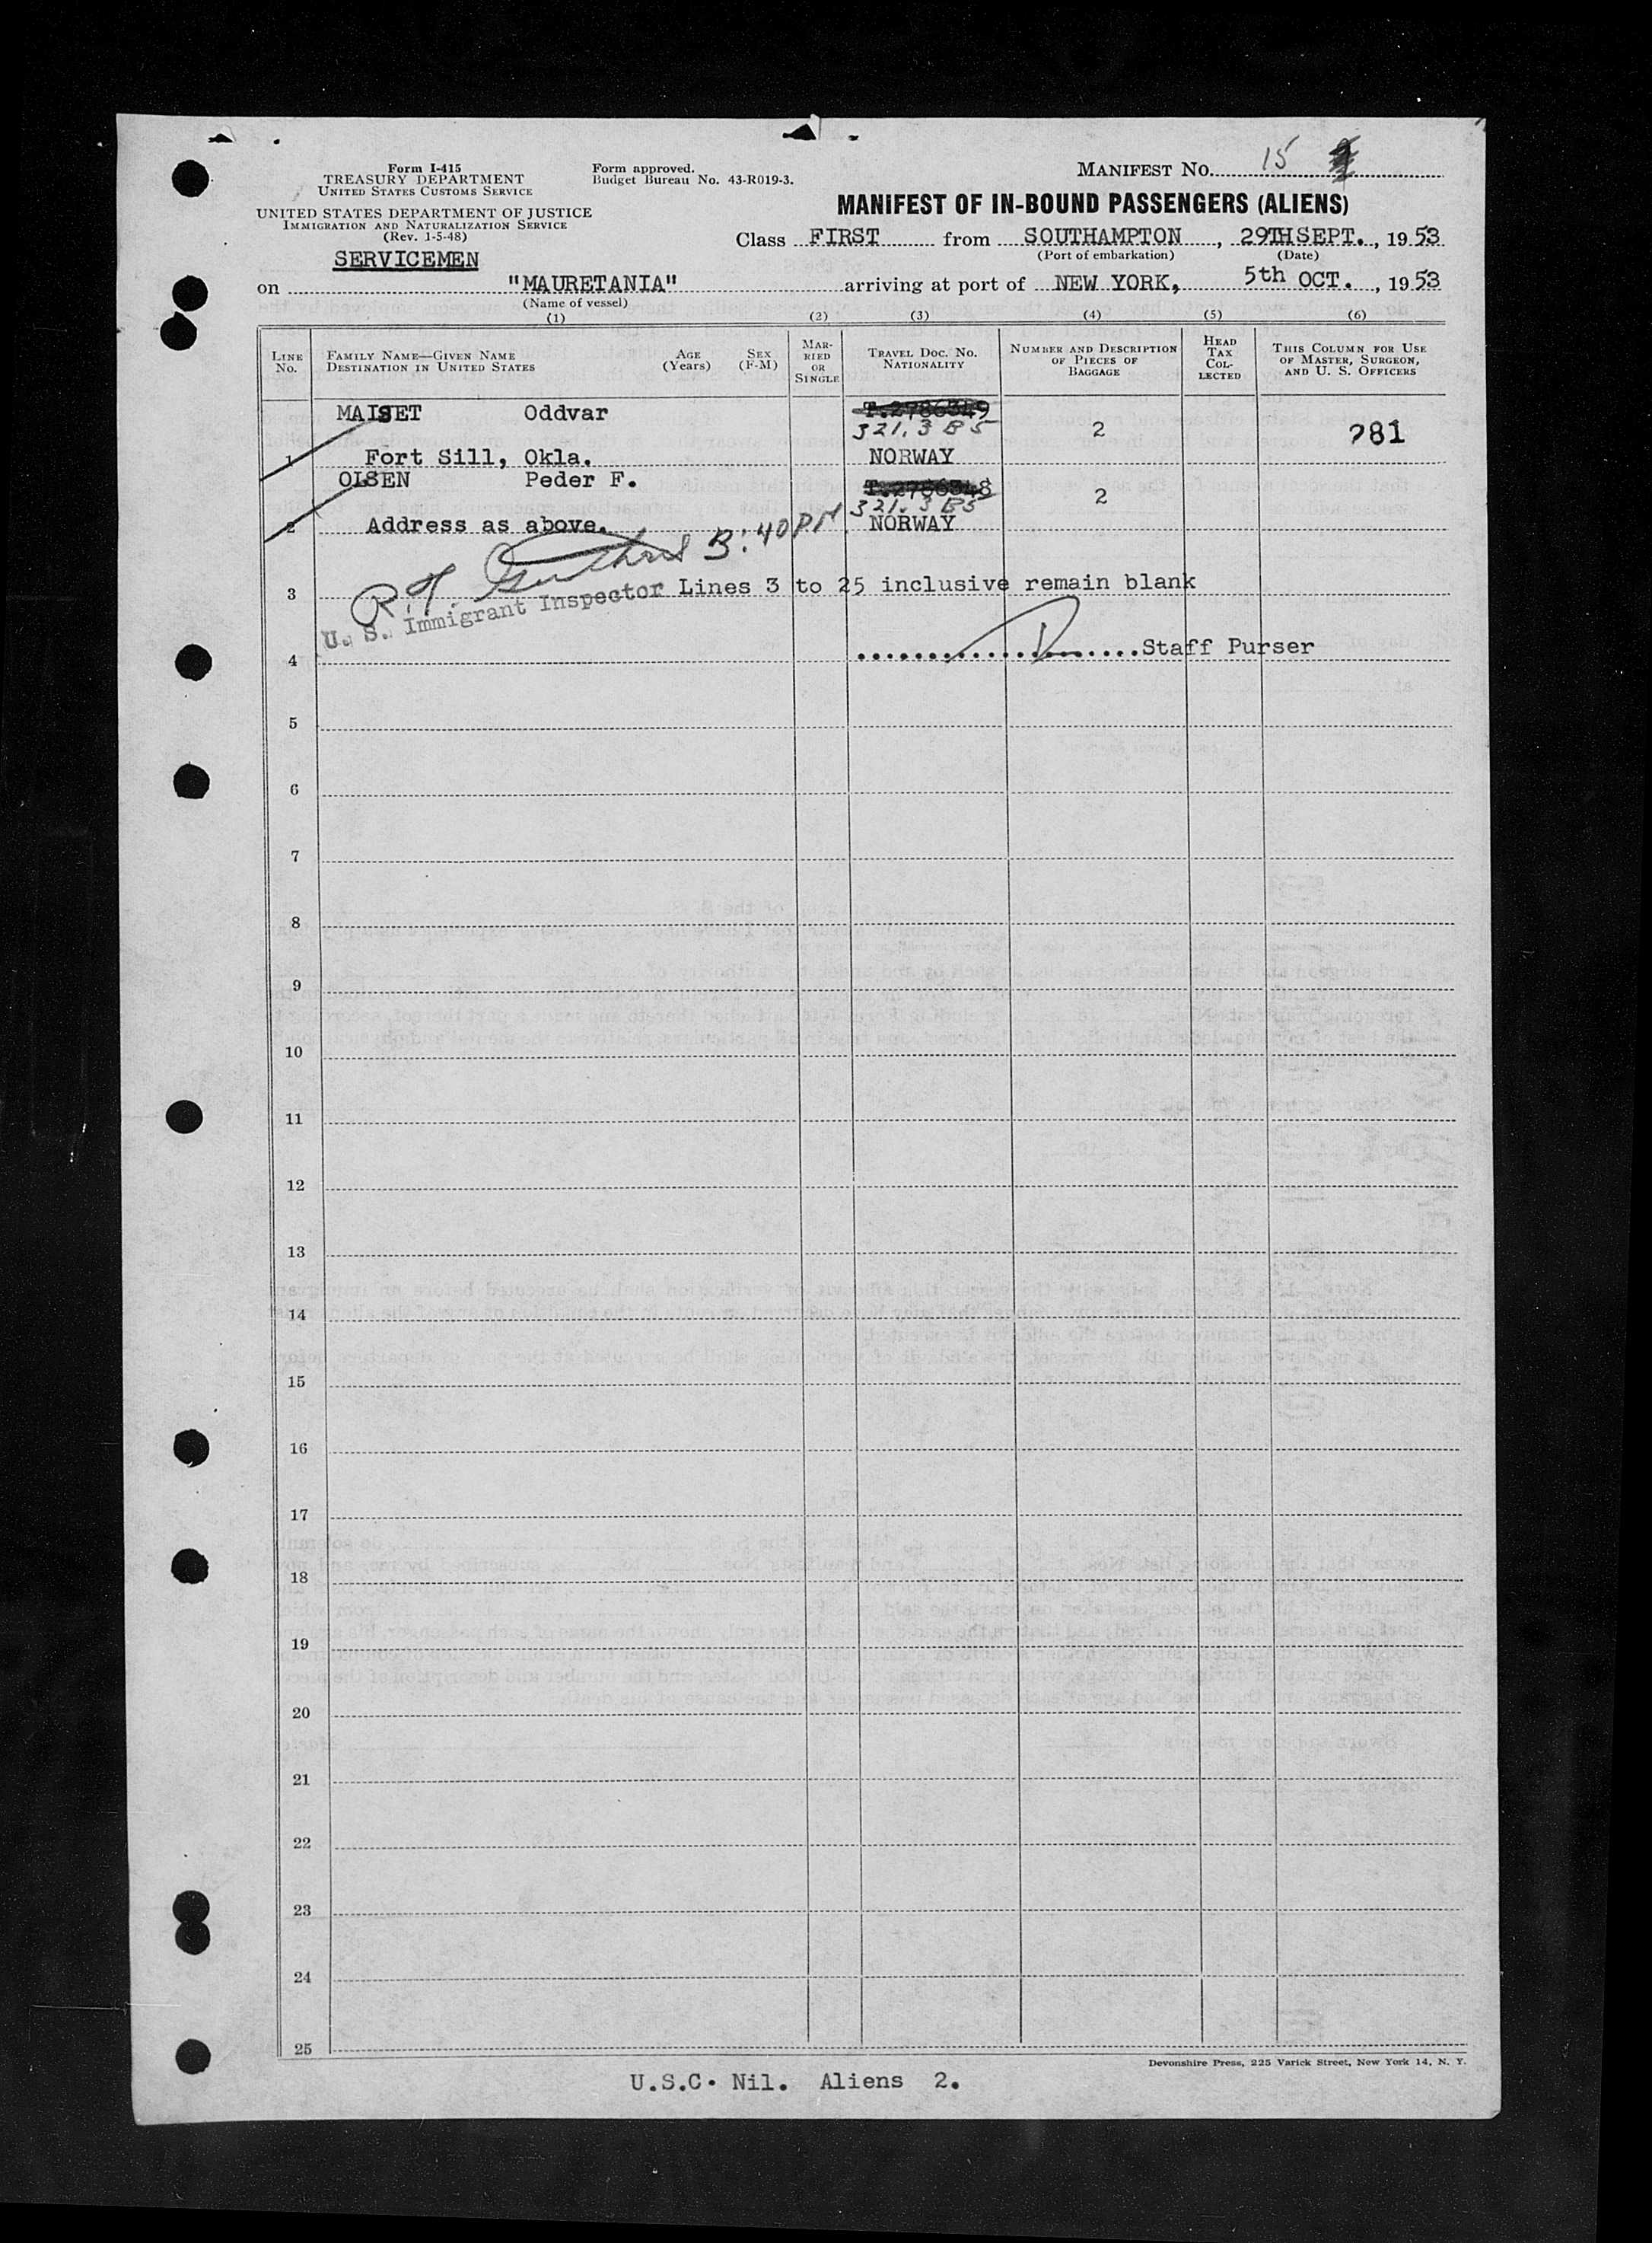 Form I-415
TREASURY DEPARTMENT
UNITED STATES CUSTOMS SERVICE
Form approved.
Budget Bureau No. 43-R019-3.
MANIFEST NO. 15
UNITED STATES DEPARTMENT OF JUSTICE
IMMIGRATION AND NATURALIZATION SERVICE
(Rev. 1-5-48)
MANIFEST OF IN-BOUND PASSENGERS (ALIENS)
Class FIRST from SOUTHAMPTON, 29TH SEPT., 1953
(Port of embarkation) (Date)
SERVICEMEN
on "MAURETANIA" arriving at port of NEW YORK, 5th OCT., 1953
(Name of vessel)
(1) (2) (3) (4) (5) (6)
LINE NO.
FAMILY NAME—GIVEN NAME
DESTINATION IN UNITED STATES
AGE (Years)
SEX (F-M)
MARRIED OR SINGLE
TRAVEL DOC. NO.
NATIONALITY
NUMBER AND DESCRIPTION OF PIECES OF BAGGAGE
HEAD TAX COLLECTED
THIS COLUMN FOR USE OF MASTER, SURGEON, AND U. S. OFFICERS
MAISET Oddvar T.2786349
321.3 B5 2 281
1 Fort Sill, Okla. NORWAY
OLSEN Peder F. T.2786348
321.3 B5 2
2 Address as above. NORWAY
3:40 PM
3 Lines 3 to 25 inclusive remain blank
U. S. Immigrant Inspector
4 Staff Purser
5
6
7
8
9
10
11
12
13
14
15
16
17
18
19
20
21
22
23
24
25
Devonshire Press, 225 Varick Street, New York 14, N. Y.
U.S.C. Nil. Aliens 2.